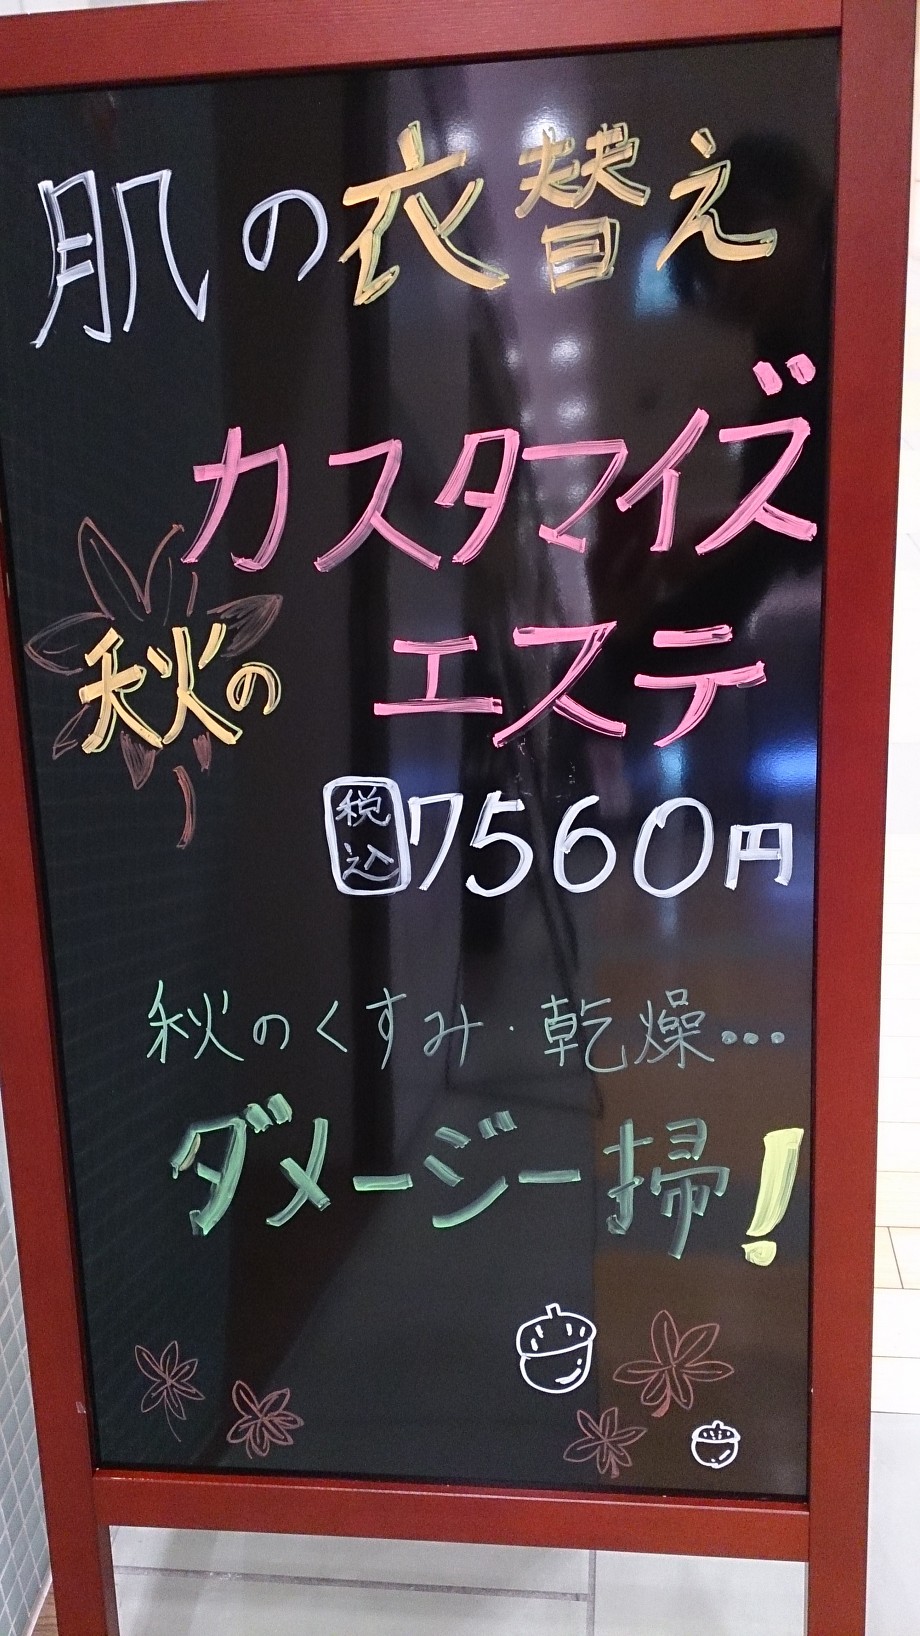 肌の衣替え
カスタマイズ
秋の エステ
税込 7560円
秋のくすみ・乾燥…
ダメージ一掃!